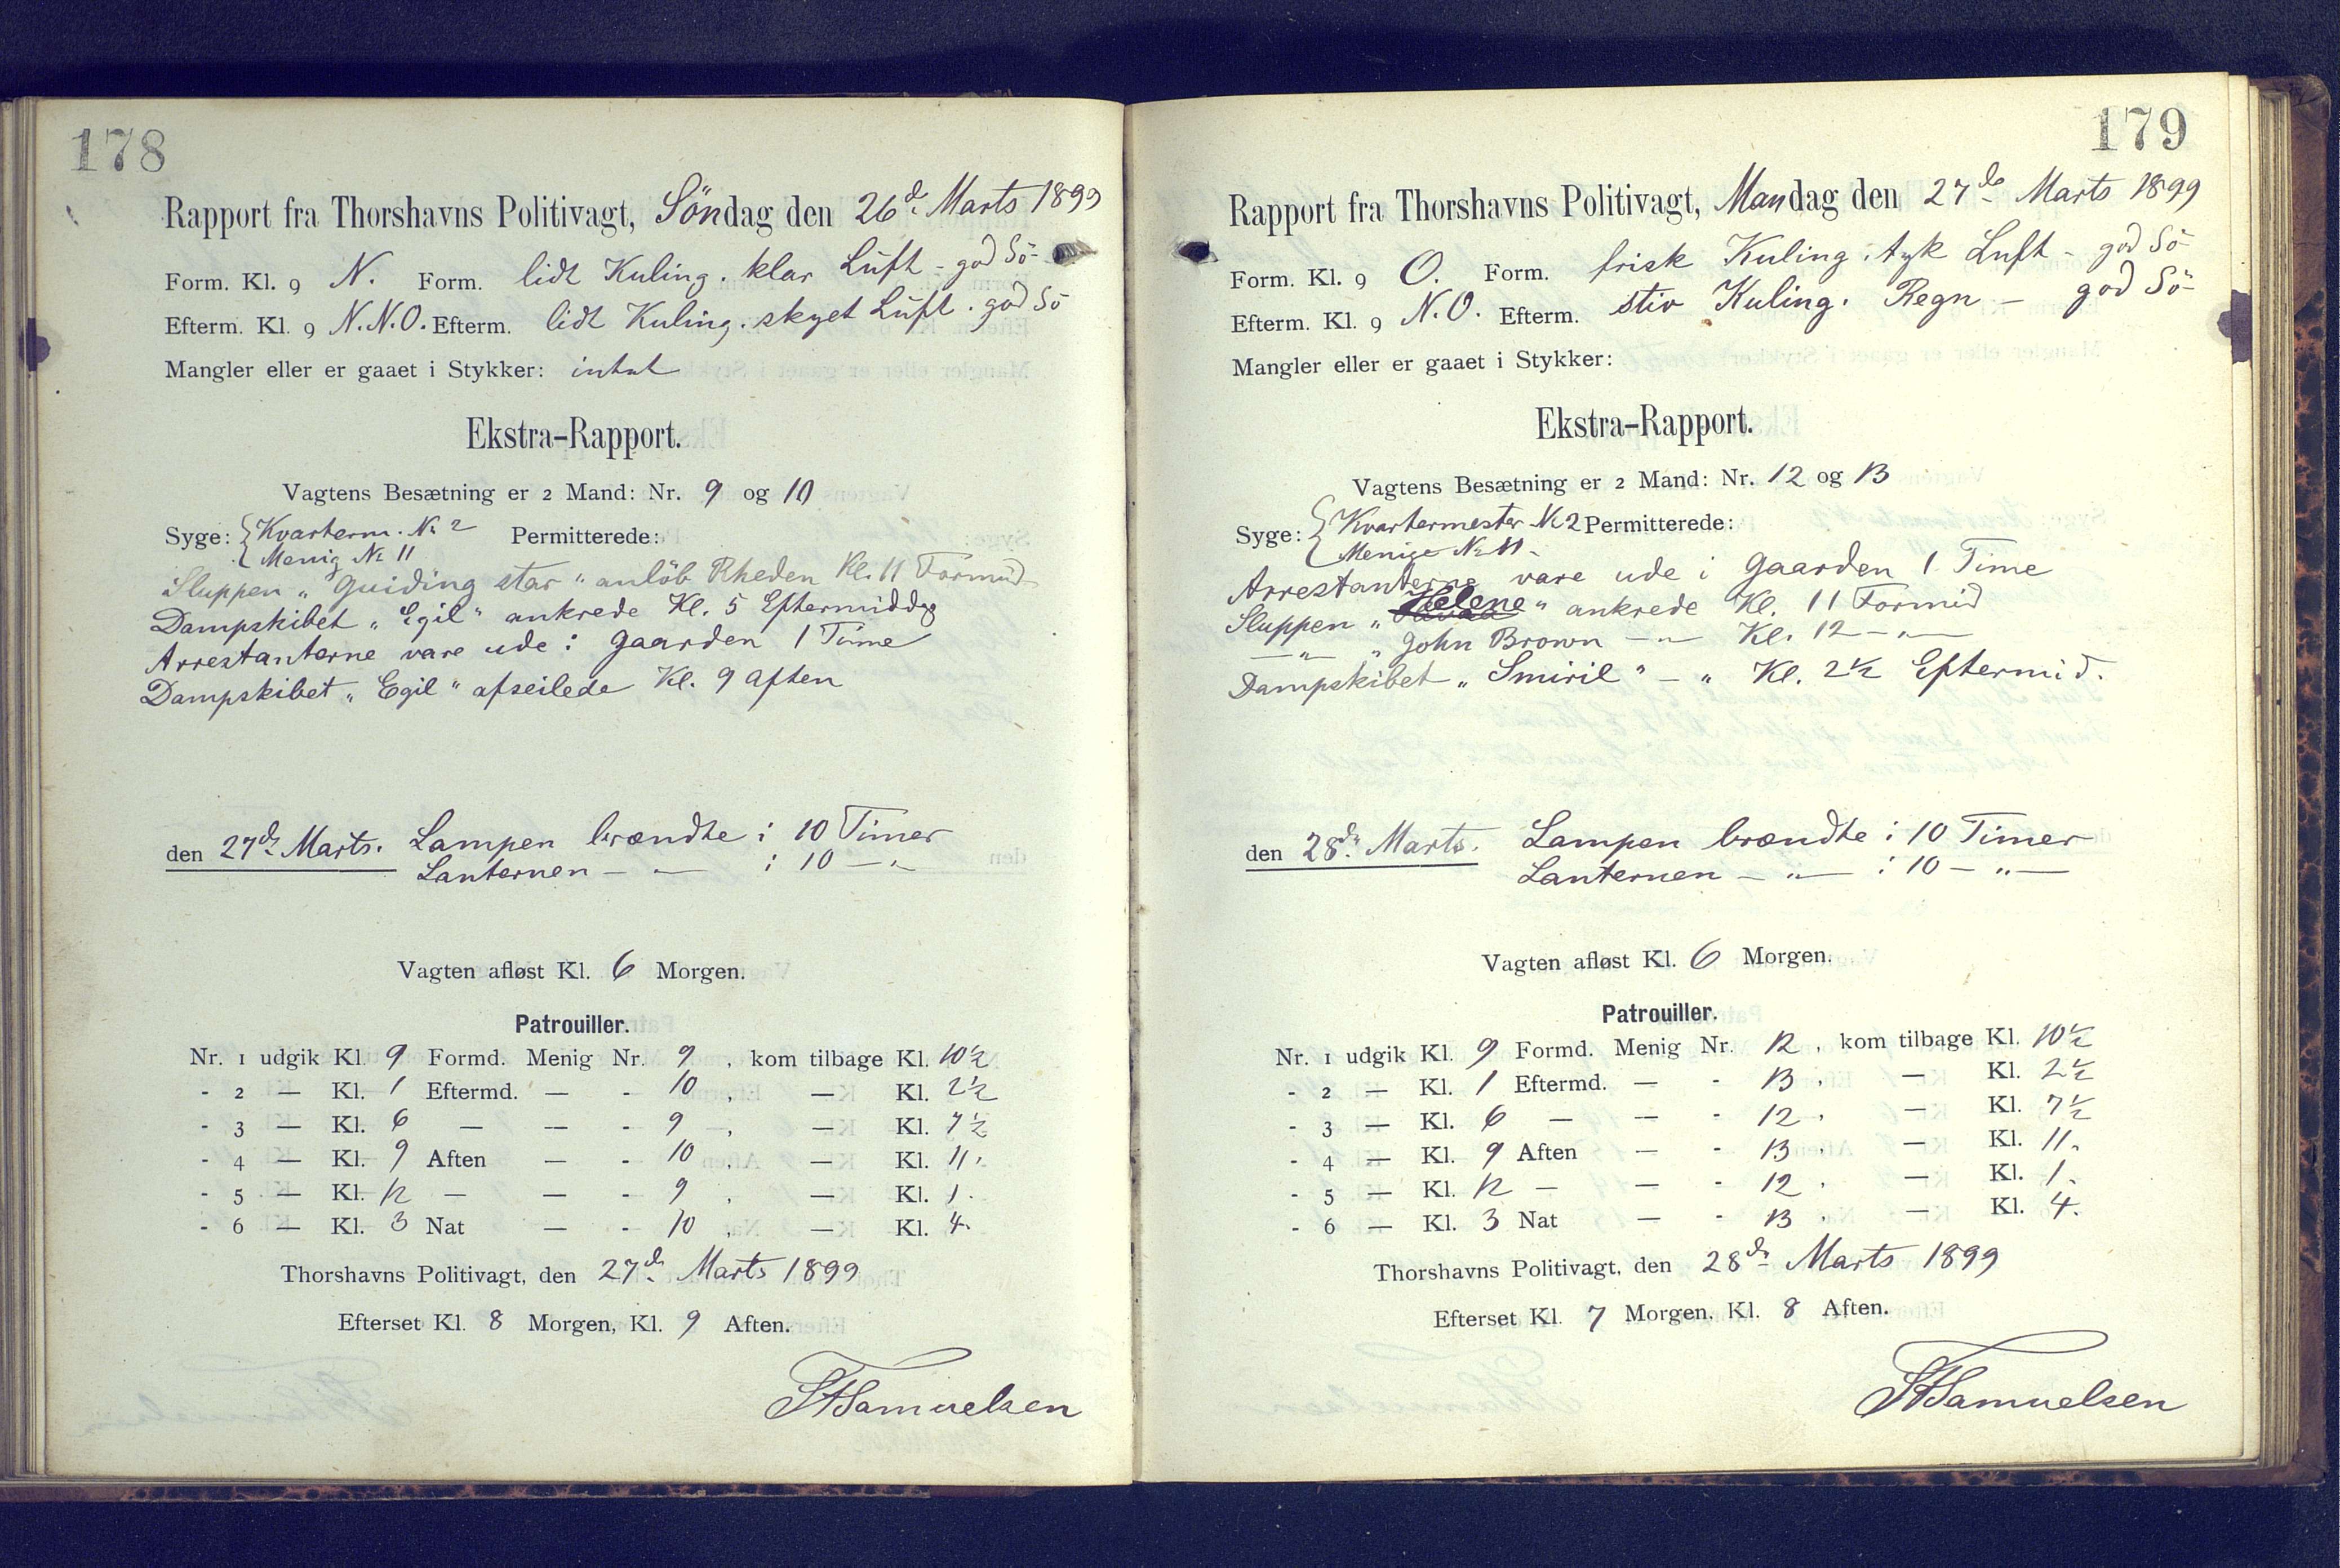 178
Rapport fra Thorshavns Politivagt, Söndag den 26de Marts 1899
Form. Kl. 9 N. Form. lidt Kuling. klar Luft - god Sö -
Efterm. Kl. 9 N.N.O. Efterm. lidt Kuling. skyet Luft. god Sö
Mangler eller er gaaet i Stykker: intet
Ekstra-Rapport.
Vagtens Besætning er 2 Mand: Nr. 9 og 10
Syge: { Kvarterm. No 2 Permitterede:
Menig No 11
Sluppen „Guiding star" anlöb Rheden Kl. 11 Formid
Dampskibet „Egil" ankrede Kl. 5 Eftermiddag
Arrestanterne vare ude i Gaarden 1 Time
Dampskibet „Egil" afseilede Kl. 9 Aften
den 27de Marts. Lampen brændte i 10 Timer
Lanternen — „ — i 10 — „
Vagten afløst Kl. 6 Morgen.
Patrouiller.
Nr. 1 udgik Kl. 9 Formd. Menig Nr. 9, kom tilbage Kl. 10½
- 2 — Kl. 1 Eftermd. — - 10, — Kl. 2½
- 3 — Kl. 6 — — - 9, — Kl. 7½
- 4 — Kl. 9 Aften — - 10, — Kl. 11.
- 5 — Kl. 12 — — - 9, — Kl. 1.
- 6 — Kl. 3 Nat — - 10, — Kl. 4.
Thorshavns Politivagt, den 27de Marts 1899
Efterset Kl. 8 Morgen, Kl. 9 Aften.
Samuelsen
179
Rapport fra Thorshavns Politivagt, Mandag den 27de Marts 1899
Form. Kl. 9 O. Form. frisk Kuling. tyk Luft - god Sö -
Efterm. Kl. 9 N.O. Efterm. stiv Kuling. Regn - god Sö -
Mangler eller er gaaet i Stykker:
Ekstra-Rapport.
Vagtens Besætning er 2 Mand: Nr. 12 og 13
Syge: { Kvartermester No 2 Permitterede:
Menige No 11 -
Arrestanterne vare ude i Gaarden 1 Time
Sluppen „Helene" ankrede Kl. 11 Formid
— „ — „ John Brown — „ — Kl. 12 — „ —
Dampskibet „Smiril" — „ Kl. 2½ Eftermid.
den 28de Marts. Lampen brændte i 10 Timer
Lanternen — „ — i 10 — „ —
Vagten afløst Kl. 6 Morgen.
Patrouiller.
Nr. 1 udgik Kl. 9 Formd. Menig Nr. 12, kom tilbage Kl. 10½
- 2 — Kl. 1 Eftermd. — - 13, — Kl. 2½
- 3 — Kl. 6 — — - 12, — Kl. 7½
- 4 — Kl. 9 Aften — - 13, — Kl. 11.
- 5 — Kl. 12 — — - 12, — Kl. 1.
- 6 — Kl. 3 Nat — - 13, — Kl. 4.
Thorshavns Politivagt, den 28de Marts 1899
Efterset Kl. 7 Morgen, Kl. 8 Aften.
Samuelsen